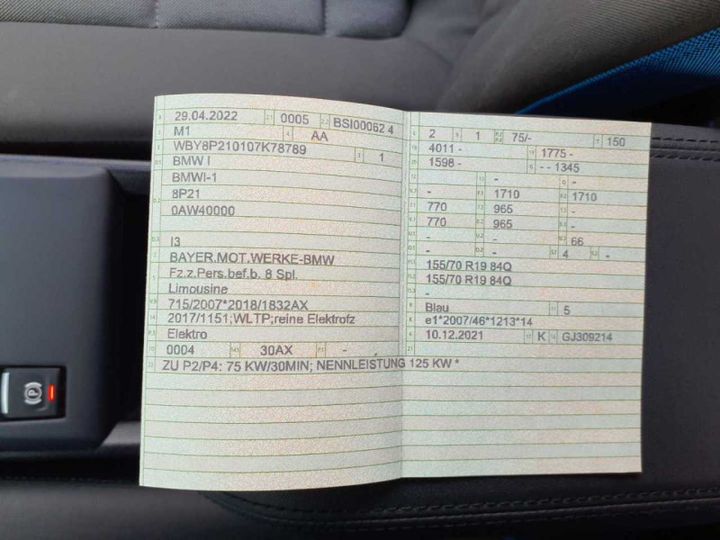 29.04.2022 0005 BSI00062 4
M1 AA
WBY8P210107K78789 1
BMW I
BMWI-1
8P21
0AW40000
I3
BAYER.MOT.WERKE-BMW
Fz.z.Pers.bef.b. 8 Spl.
Limousine
715/2007*2018/1832AX
2017/1151;WLTP;reine Elektrofz
Elektro
0004 30AX -
ZU P2/P4: 75 KW/30MIN; NENNLEISTUNG 125 KW *
2 1 75/- 150
4011 - 1775 -
1598 - - - 1345
- -
- 1710 1710
770 965 -
770 965 -
- - 66
- - 4 -
155/70 R19 84Q
155/70 R19 84Q
-
Blau 5
e1*2007/46*1213*14
10.12.2021 K GJ309214